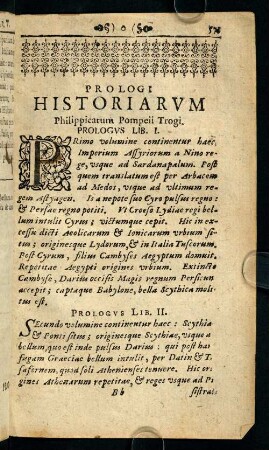 PROLOGI
HISTORIARVM
Philippicarum Pompeii Trogi.
PROLOGVS LIB. I.
PRimo volumine continentur haec.
Imperium Assyriorum a Nino re-
ge, vsque ad Sardanapalum. Post
quem translatum est per Arbacem
ad Medos, vsque ad vltimum re-
gem Astyagen. Is a nepote suo Cyro pulsus regno:
& Persae regno potiti. Vt Croeso Lydiae regi bel-
lum intulit Cyrus; victumque cepit. Hic in ex-
cessu dicti Aeolicarum & Ionicarum vrbium si-
tus; originesque Lydorum, & in Italia Tuscorum.
Post Cyrum, filius Cambyses Aegyptum domuit.
Repetitae Aegypti origines vrbium. Extincto
Cambyse, Darius occisis Magis regnum Persicum
accepit; captaque Babylone, bella Scythica moli-
tus est.
PROLOGVS LIB. II.
SEcundo volumine continentur haec: Scythia
& Ponti situs; originesque Scythiae, vsque a
bellum, quo est inde pulsus Darius: qui post han
fugam Graeciae bellum intulit, per Datin & T
safernem, quod soli Athenienses tenuere. Hic ori-
gines Athenarum repetitae, & reges vsque ad Pi
Bb
sistrat.